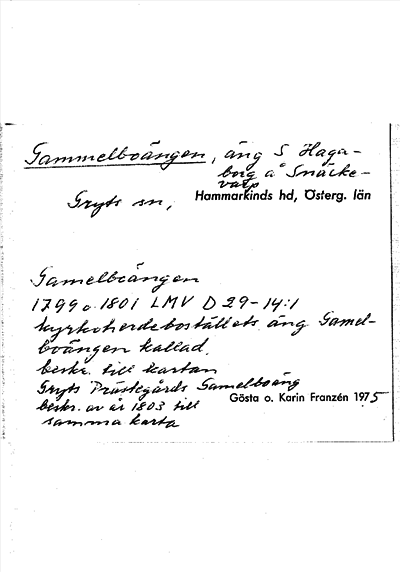 Gammelboängen, äng S Haga-
borg å Snäcke-
varp
Gryts sn,
Hammarkinds hd, Österg. län
Gamelboängen
1799 o. 1801 LMV D 29-14:1
kyrkoherdeboställets äng Gamel-
boängen kallad.
beskr. till kartan
Gryts Prästegårds Gamelboäng
beskr. av år 1803 till
samma karta
Gösta o. Karin Franzén 1975